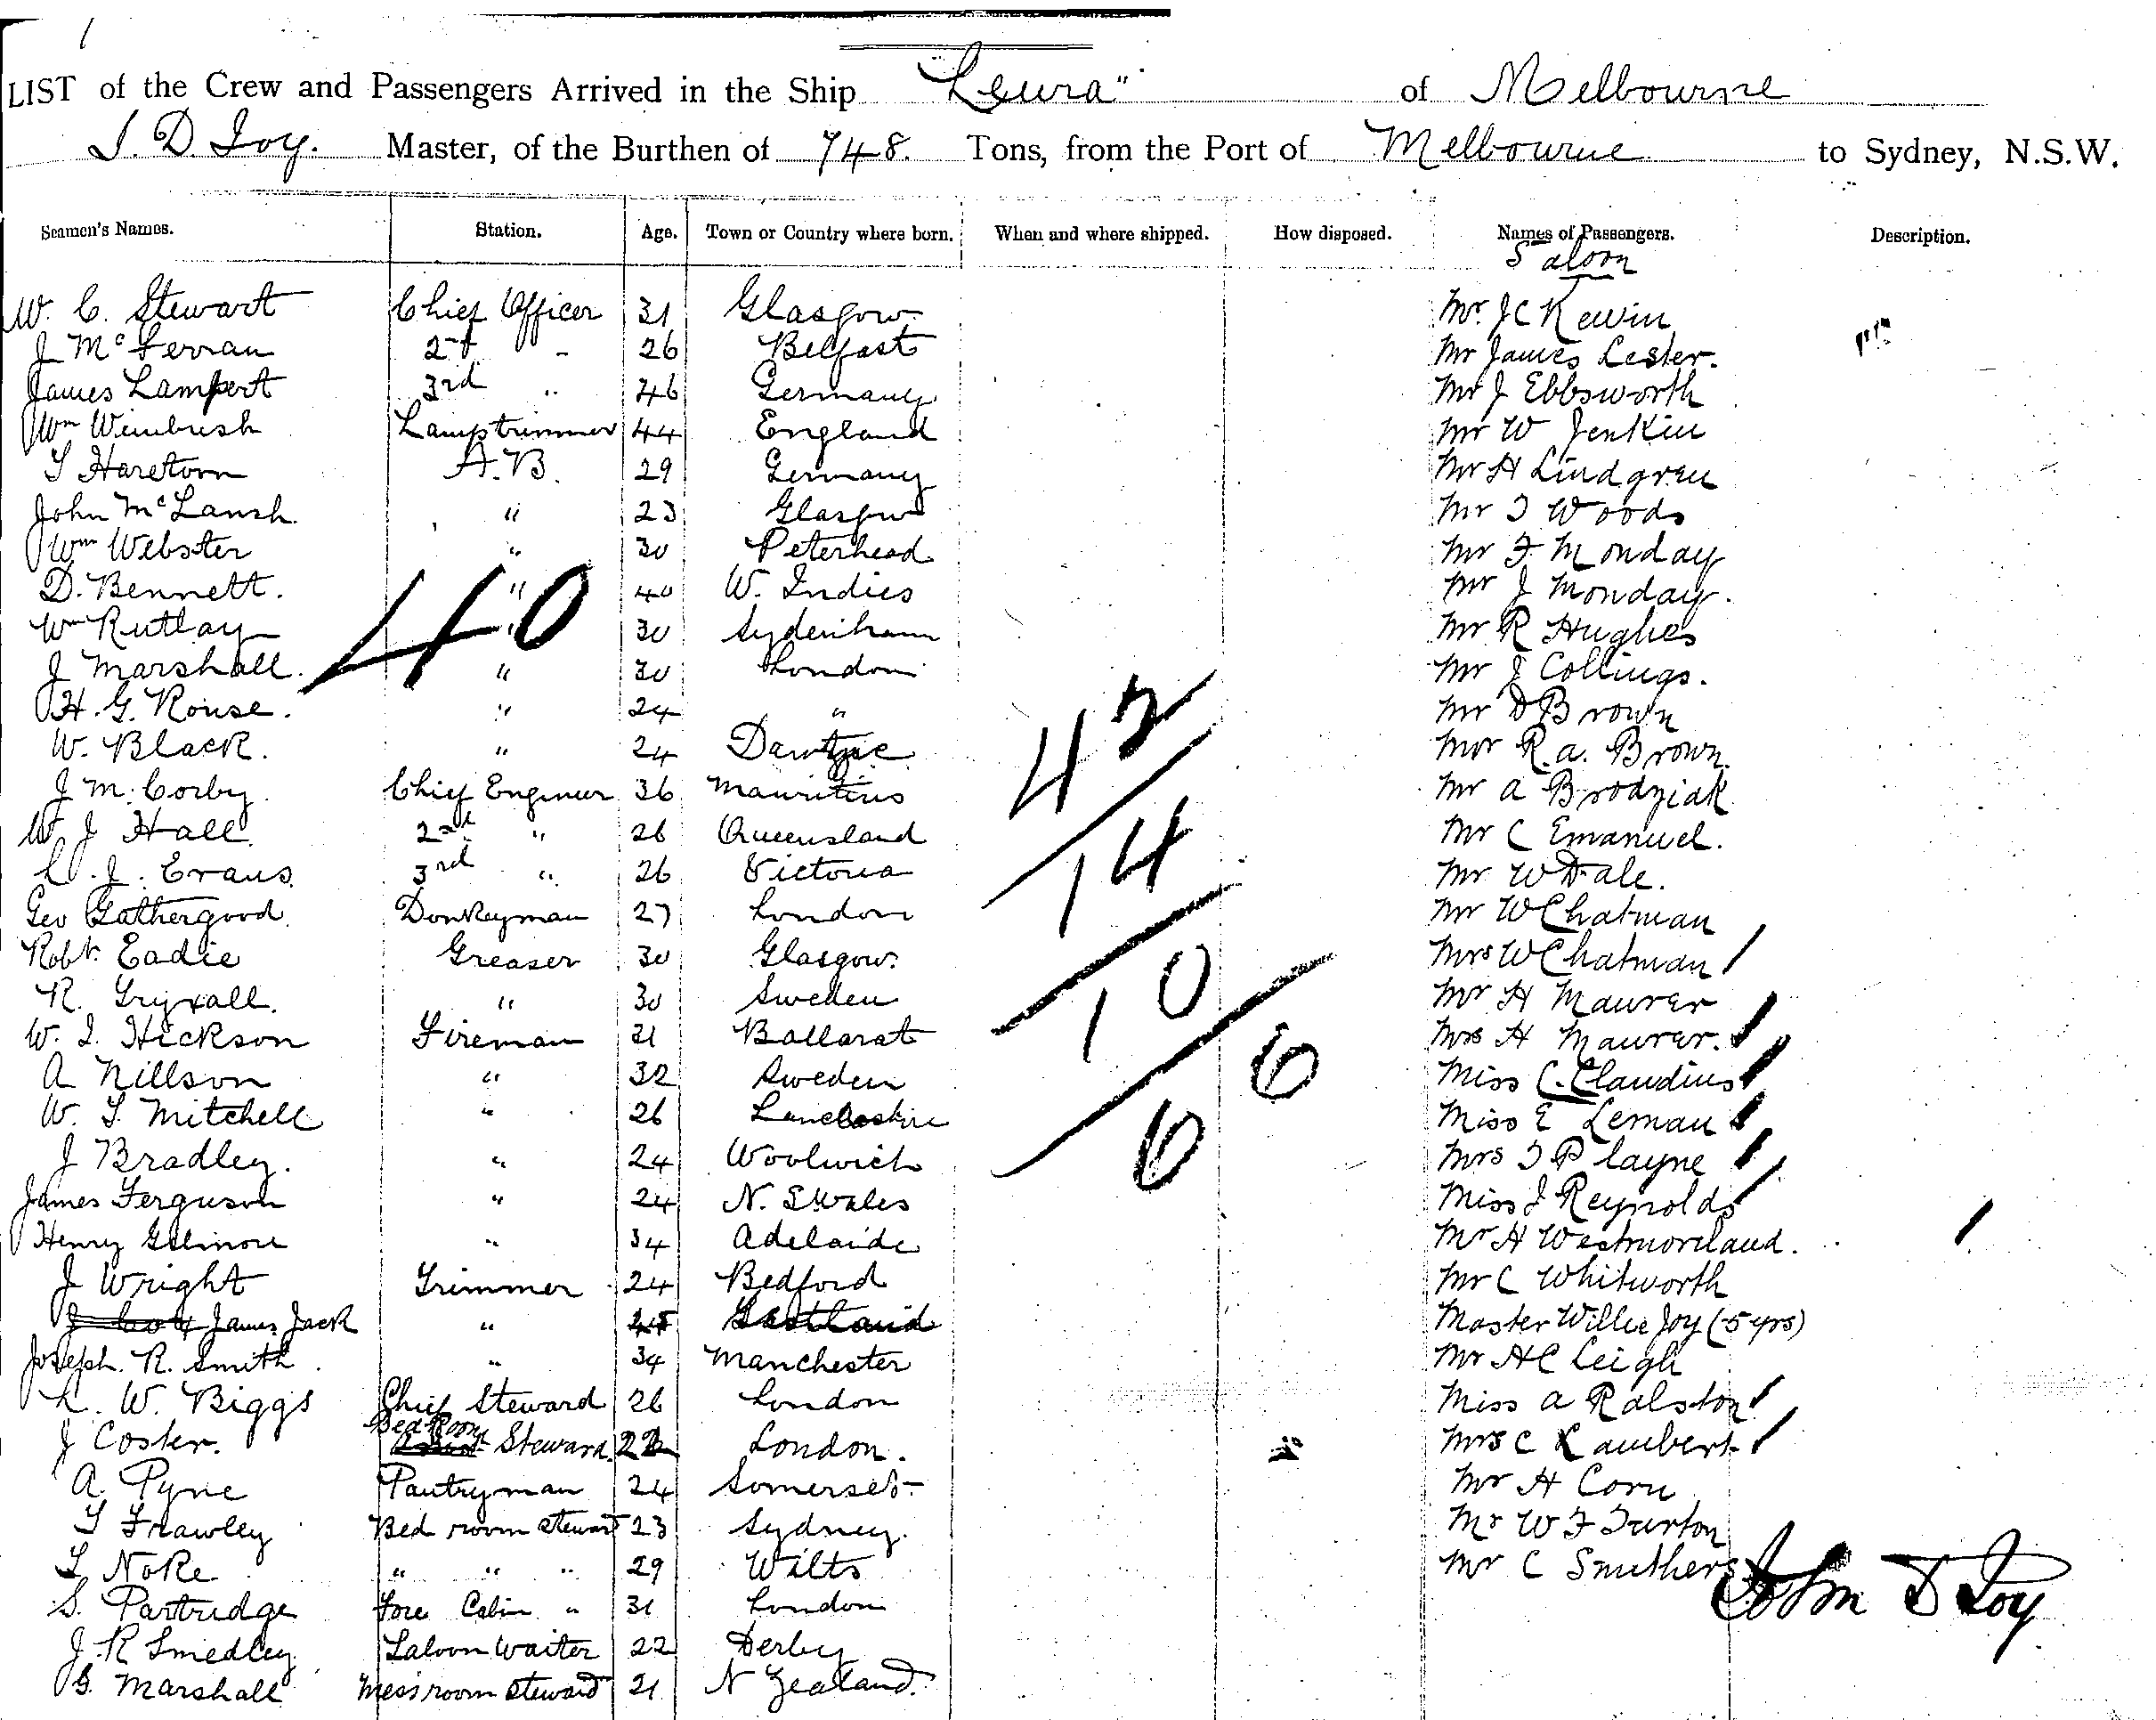 LIST of the Crew and Passengers Arrived in the Ship "Leura" of Melbourne
J. D. Joy. Master, of the Burthen of 748. Tons, from the Port of Melbourne to Sydney, N.S.W.
Seamen's Names. Station. Age. Town or Country where born. When and where shipped. How disposed. Names of Passengers. Description.
Saloon
W. C. Stewart Chief Officer 31 Glasgow Mr. J C Kewin
J McFerran 2nd " 26 Belfast Mr James Lester.
James Lampert 3rd " 46 Germany Mr J Ebbsworth
Wm Wimbush Lamptrimmer 44 England Mr W Jenkin
A.B. 29 Germany Mr H Lindgren
John " 23 Glasgow Mr T Woods
Wm Webster " 30 Peterhead Mr F Monday
D. Bennett. " 40 W. Indies Mr J Monday.
Wm Rutlay " 30 Sydenham Mr R Hughes
J Marshall. " 30 London Mr J Collings.
H. G. Rouse. " 24 " Mr D Brown
W. Black. " 24 Mr R. A. Brown.
J M. Corby Chief Engineer 36 Mauritius Mr A Brodziak
W J Hall 2nd " 26 Queensland Mr C Emanuel.
J. Evans. 3rd " 26 Victoria Mr W Dale.
Geo Gathergood Donkeyman 27 London Mr W Chatman
Robt. Eadie Greaser 30 Glasgow. Mrs W Chatman
R. " 30 Sweden Mr H Maurer
W. T. Hickson Fireman 21 Ballarat Mrs H Maurer.
A Nillson " 32 Sweden Miss C. Claudius
W. T. Mitchell " 26 Miss E Leman
J Bradley. " 24 Woolwich Mrs T Playne
James Ferguson " 24 N. S Wales Miss J Reynolds
Henry Gilmore " 34 Adelaide Mr H Westmoreland.
J Wright Trimmer 24 Bedford Mr C Whitworth
James Jack " Master Willie Joy (5 yrs)
Joseph. R. Smith " 34 Manchester Mr H C Leigh
L. W. Biggs Chief Steward 26 London Miss A Ralston
J Coster. Bed Room Steward 22 London. Mrs C Lambert
A. Pyne Pantryman 24 Somerset Mr H Corn
T Frawley Bed room Steward 23 Sydney. Mr W F Turton
T Noke " " " 29 Wilts Mr C Smithers
S. Partridge Fore Cabin " 31 London
J. R Smedley Saloon Waiter 22 Derby
G. Marshall Messroom Steward 21 N Zealand.
40
42
14
10
6
6
John D Joy